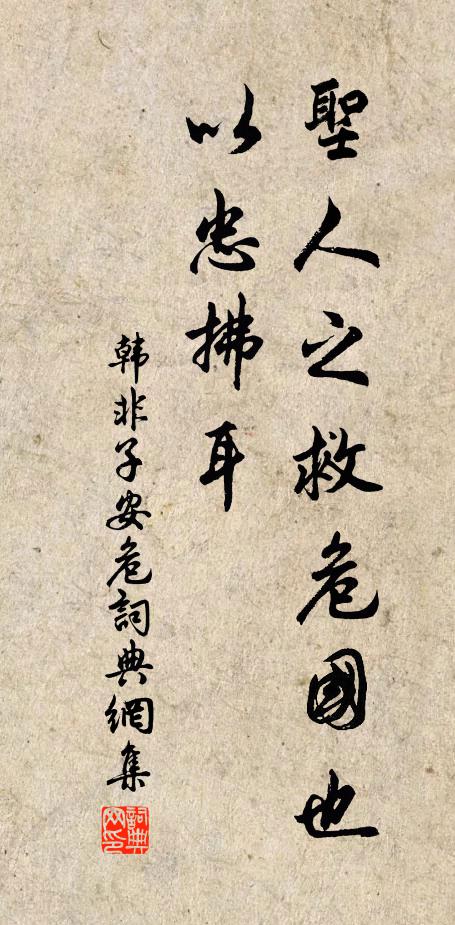 聖人之救危國也
以忠拂耳
韩非子安危詞典網集
詞典
网印